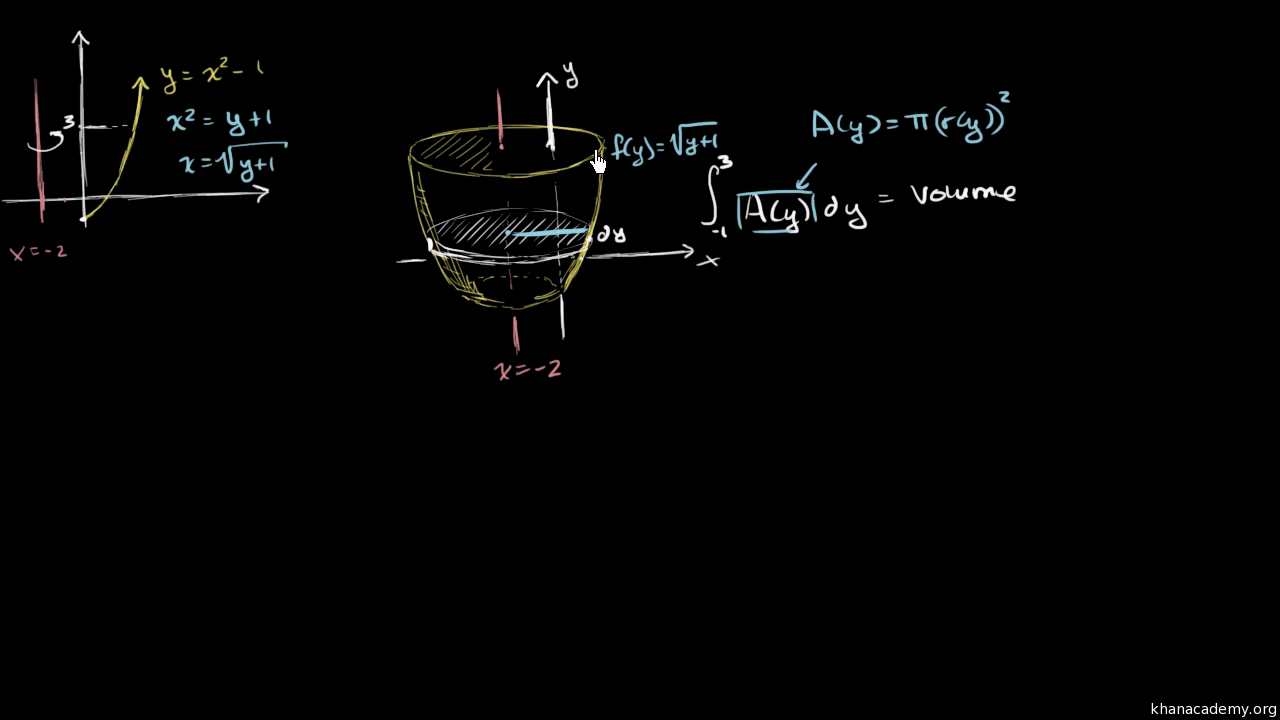 y = x² - 1
x² = y+1
x = √y+1
3
x = -2
y
f(y) = √y+1
dy
x
x = -2
A(y) = π(r(y))²
∫₋₁³ A(y) dy = volume
khanacademy.org